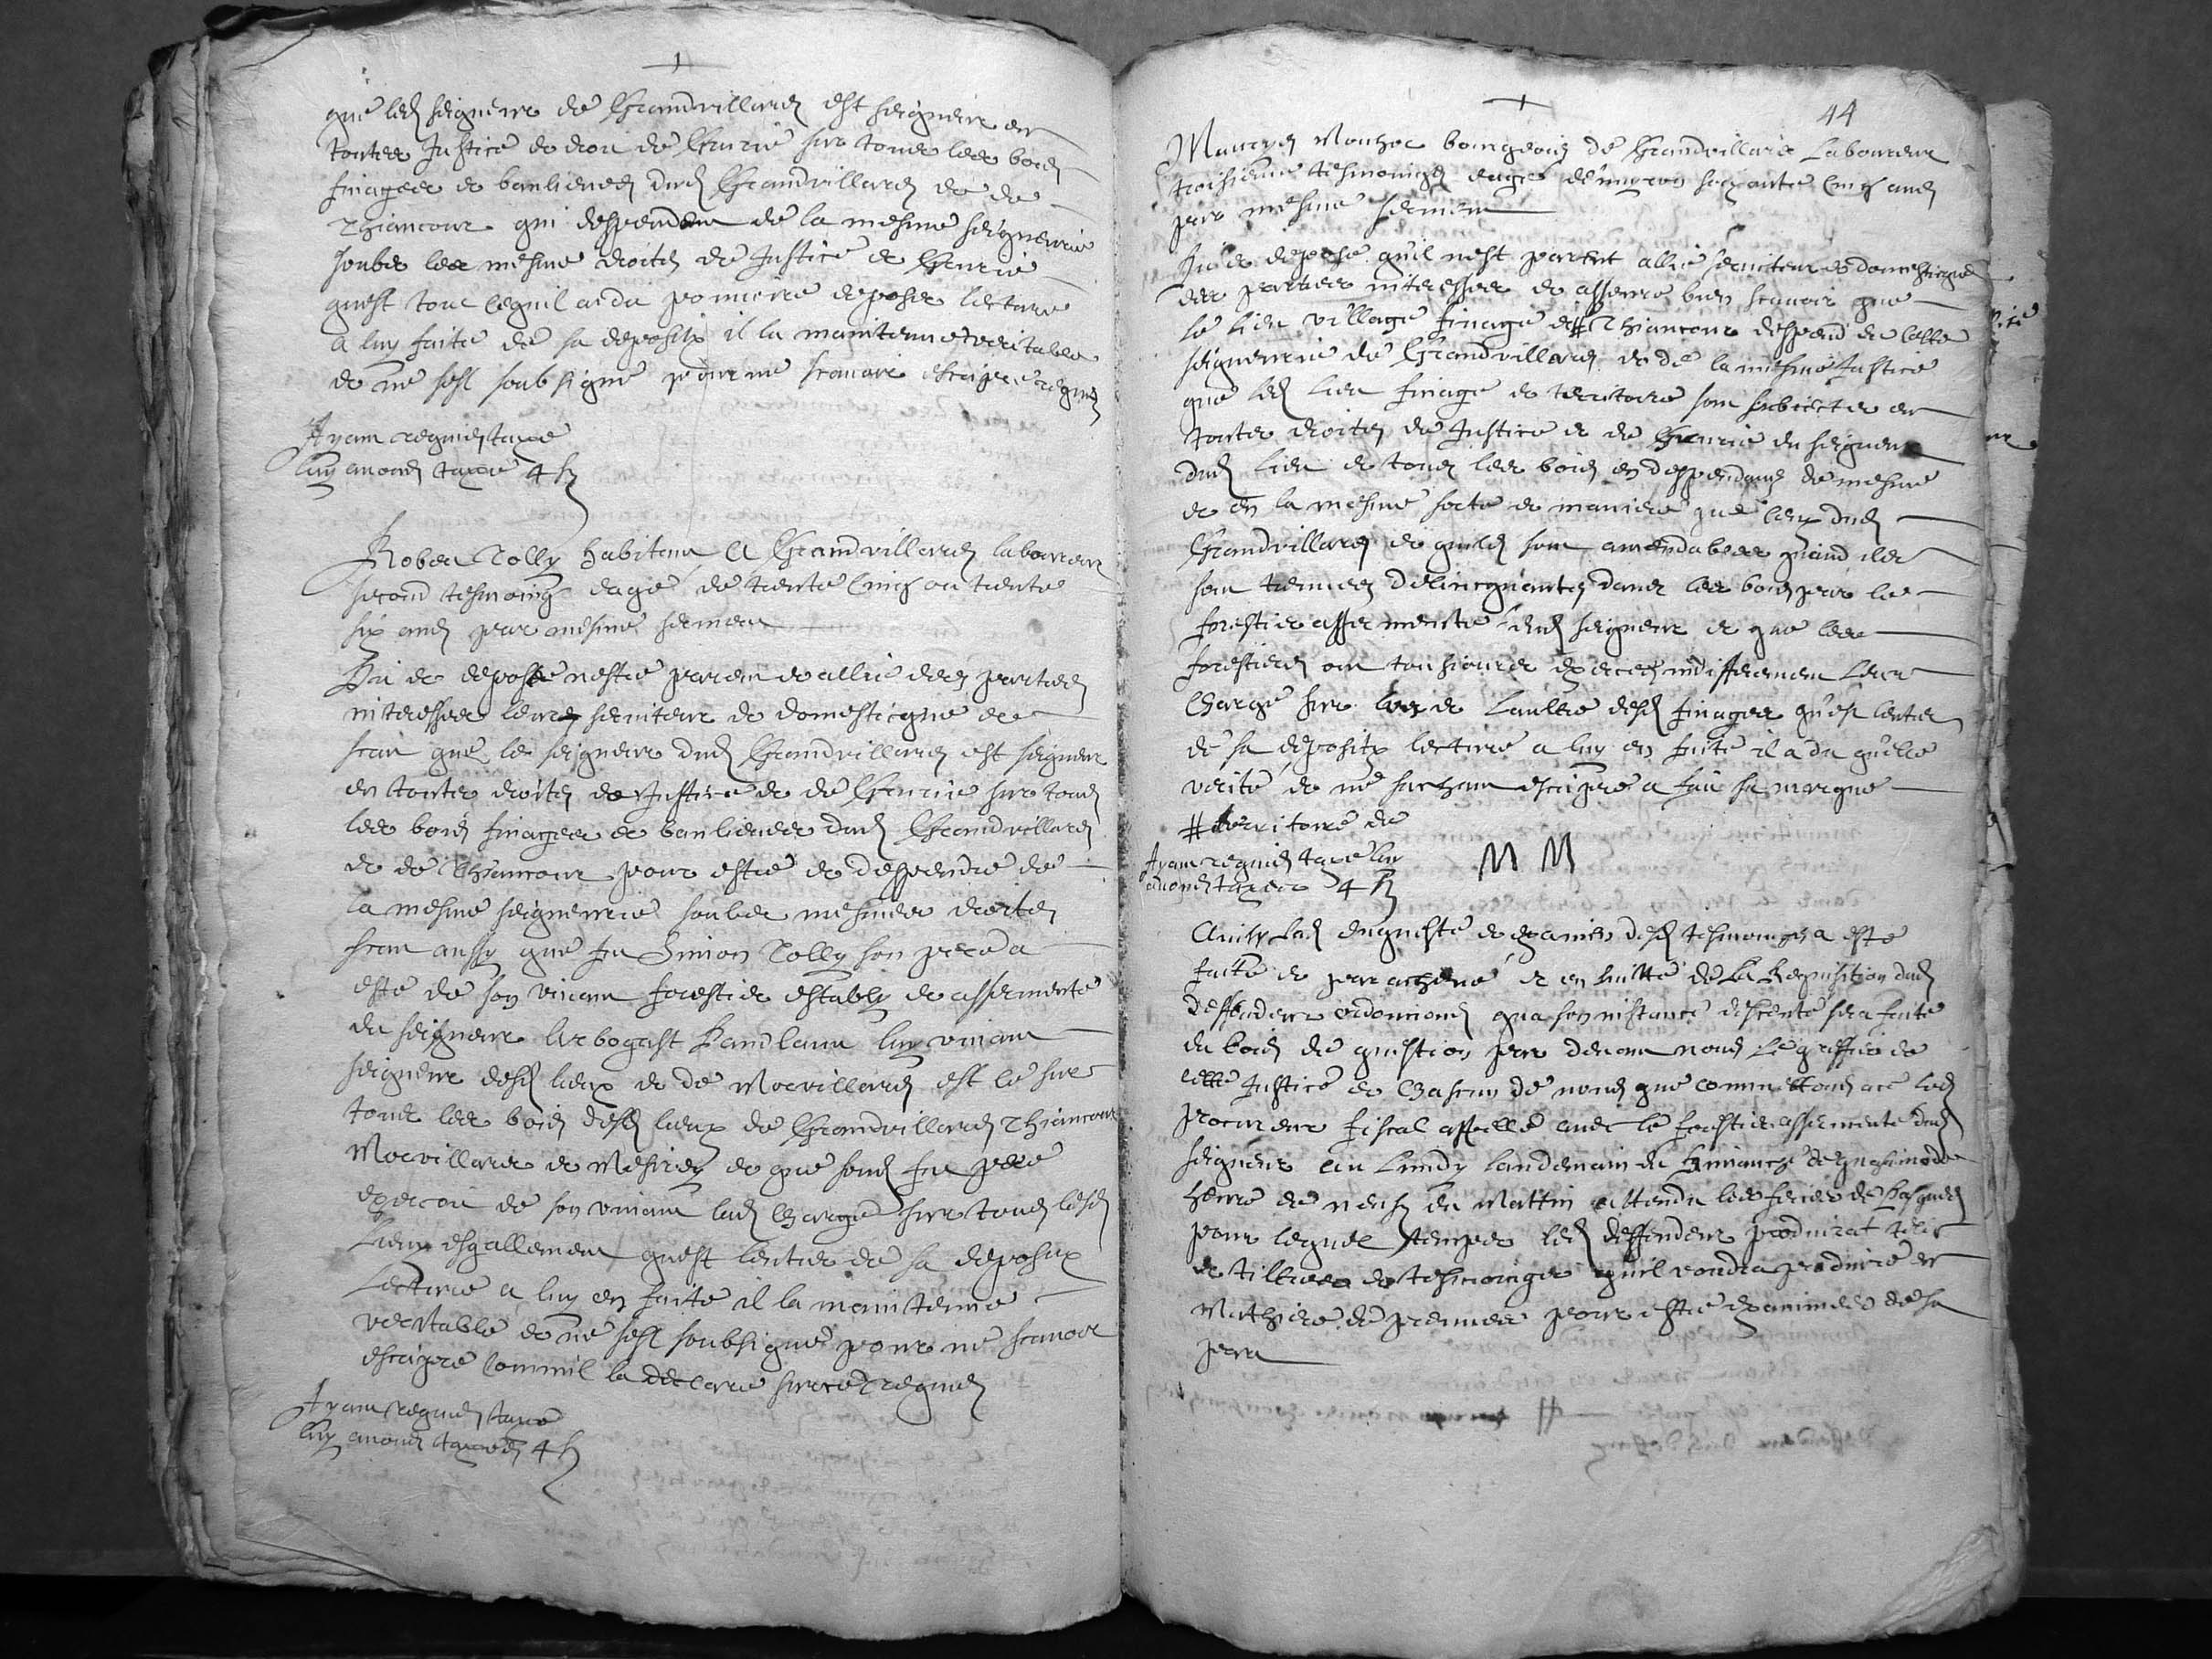 que led seigneur de Grandvillard est seigneur en
toutes Justice et droit de Grurie sur tous les bois
finages et banlieues dud Grandvillard et de
Thiancour qui despendent de la mesme seigneurie
soubs les mesme droits de Justice et Grurie
quest tout cequil a dit pouvoir deposer lecture
a luy faite de sa depositz il la maintenue veritable
et ne sest soubsigné pour ne scavoir escripre requis
Ayant requis taxe
luy avons taxé 4 s
Robert Colly habitant a Grandvillard laboureur
second tesmoing eagé de trente cinq ou trente
six ans par mesme serment
Dit et depose nestre parent et allié des parties
interessees leurs serviteur et domesticque et
scait que le seigneur dud Grandvillard est seigneur
en toutes droits de Justice et de Grurie sur tous
les bois finages et banlieues dud Grandvillard
et de Thiancour pour estre et despendre de
la mesme seigneurie soubs mesmes droits
scait aussy que fu Simon Colly son pere a
esté de son vivant forestier estably et assermenté
du seigneur Arbogast luy vivant
seigneur desd lieux et de Morvillard est le sur
tous les bois desd lieux de Grandvillard Thiancour
Morvillard et Mesirez et que sond fu pere
de son vivant lad charge sur tous lesd
Lieux esgallement quest lentier de sa depositz
Lecture a luy en faite il la maintenue
veritable et ne sest soubsigné pour ne scavoir
escripre comm'il la declaré surce requis
Ayant requis taxe
luy avons taxé 4 s
44
bourgeois de Grandvillard Laboureur
troisieme tesmoing eagé denviron soixante cinq ans
par mesme serment
Jure depose quil nest parent allié serviteur et domesticque
des parties interessees et asseure bien scavoir que
le lieu village finage et # Thiancour despend de cette
seigneurie de Grandvillard et de la mesme Justice
que led lieu finage et territoire sont subiects en
toutes droits de Justice et de Grurie du seigneur
dud lieu et tous les bois en deppendans de mesme
et en la mesme sorte et maniere que ceux dud
Grandvillard et quils sont amendables quand ils
sont trouvez delincquants dans les bois par le
forestier assermenté dud seigneur et que les
forestiers ont tousiours exercez indifferement leur
charge sur lun et laultre desd finages qu'est lentier
de sa depositz lecture a luy en faite il a dit quelle
verité et ne sachant escripre a fait sa marque
# territoire de
Ayant requis taxe luy
avons taxer 4 s
M M
lad enqueste et examen desd tesmoings a esté
faite et parachevé et en suitte de la Requisition dud
deffendeur ordonnons qua son instance descente sera faite
du bois de question par devant nous Le greffier de
cette Justice et chascun de nous que commettons avec led
procureur fiscal appellé avec le forestier assermenté dud
seigneur au Lundy landemain du dimanche de quasimodo
heure de neufz du mattin attendu les feries de Pasques
pour lequel temps led deffendeur produirat tels
et tiltres et tesmoings quil voudra produire en
Mathiere de preuves pour estre examinees de sa
part